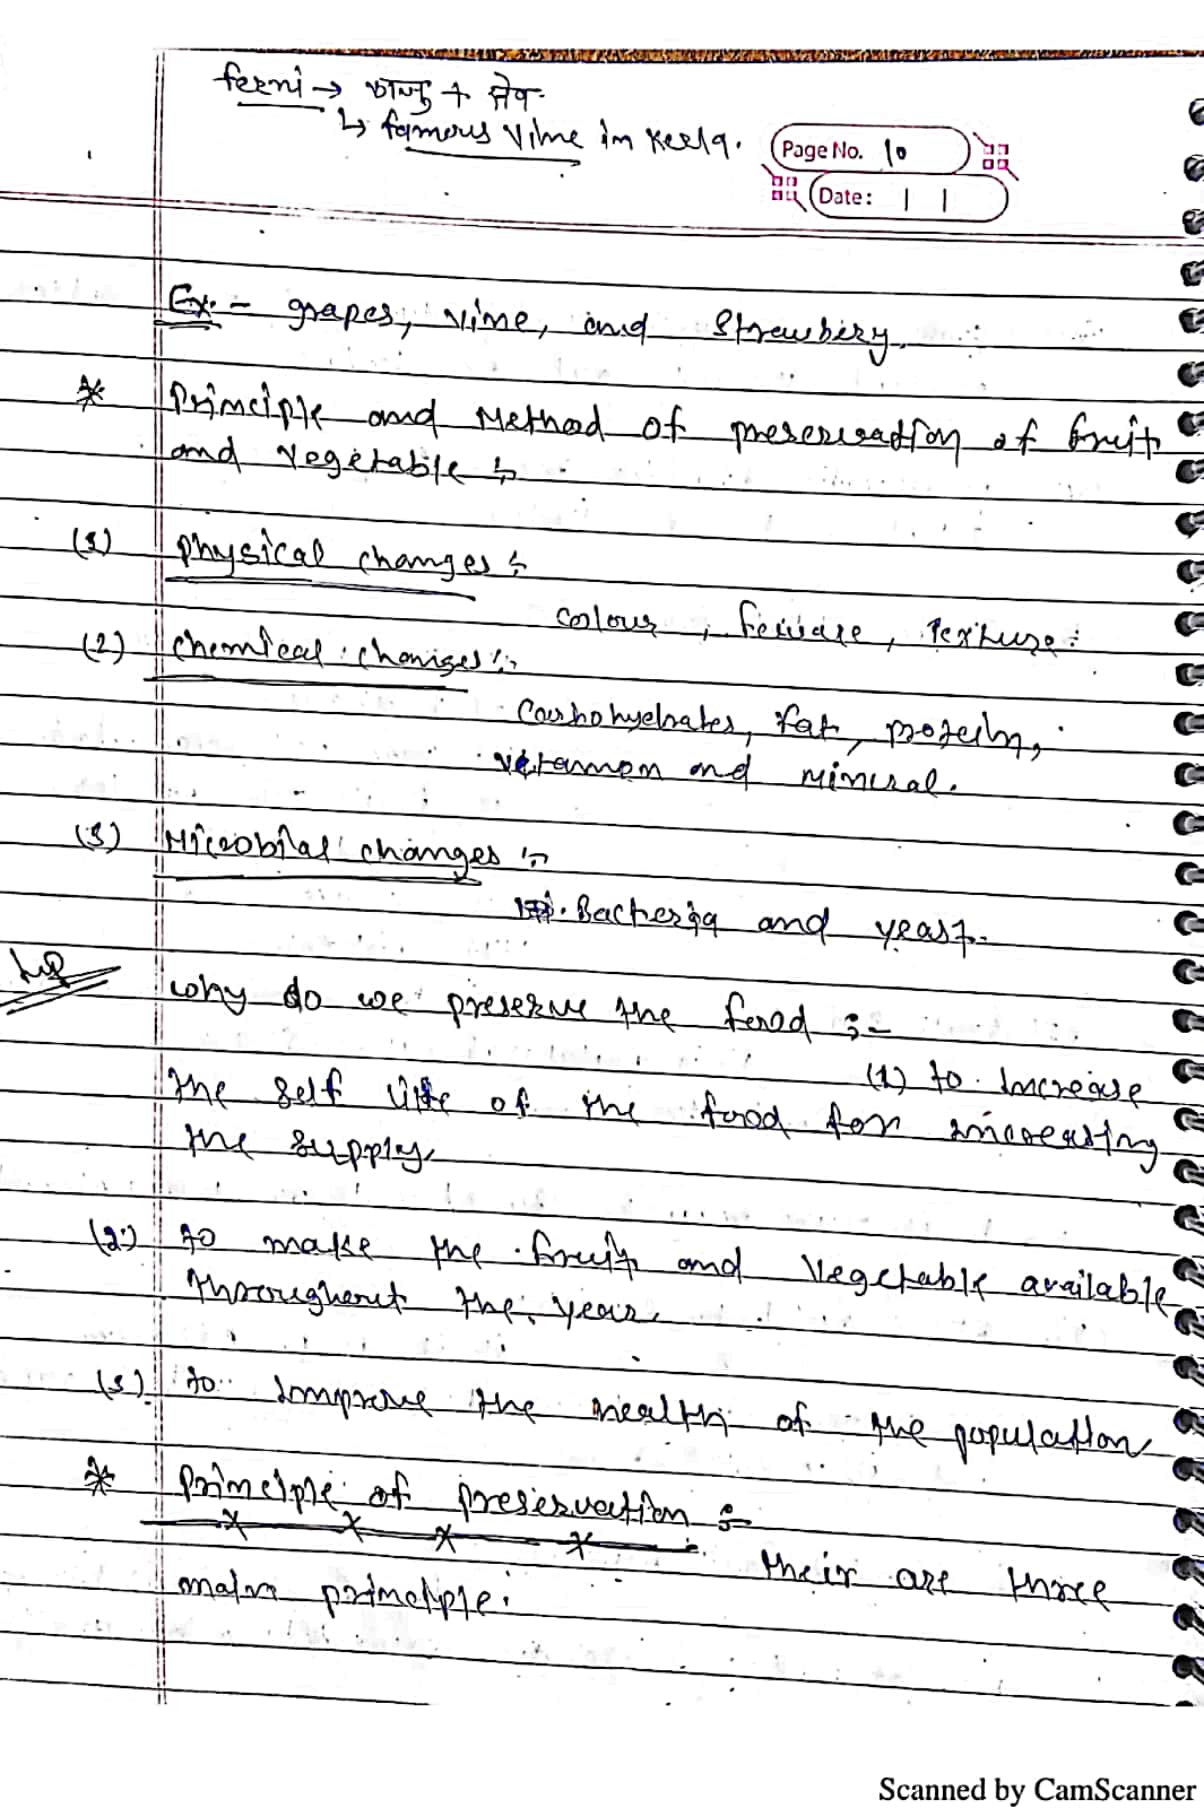 ferni → काजु + सेव
↳ famous vine in Kerla.
Page No. 10
Date: | |
Ex:- grapes, vine, and Strewbery.
* Principle and Method of preservation of fruit
and vegetable :-
(1) Physical changes :-
colour, , Texture :
(2) Chemical changes :-
Carbohydrates, Fat, protein,
vitamen and mineral.
(3) Microbial changes :-
Bacteria and yeast.
Imp
why do we preserve the food :-
(1) to increase
the self life of the food for increasing
the supply.
(2) to make the fruit and vegetable available
throughout the year.
(3) to improve the health of the population
* Principle of preservation :-
their are three
main principle.
Scanned by CamScanner